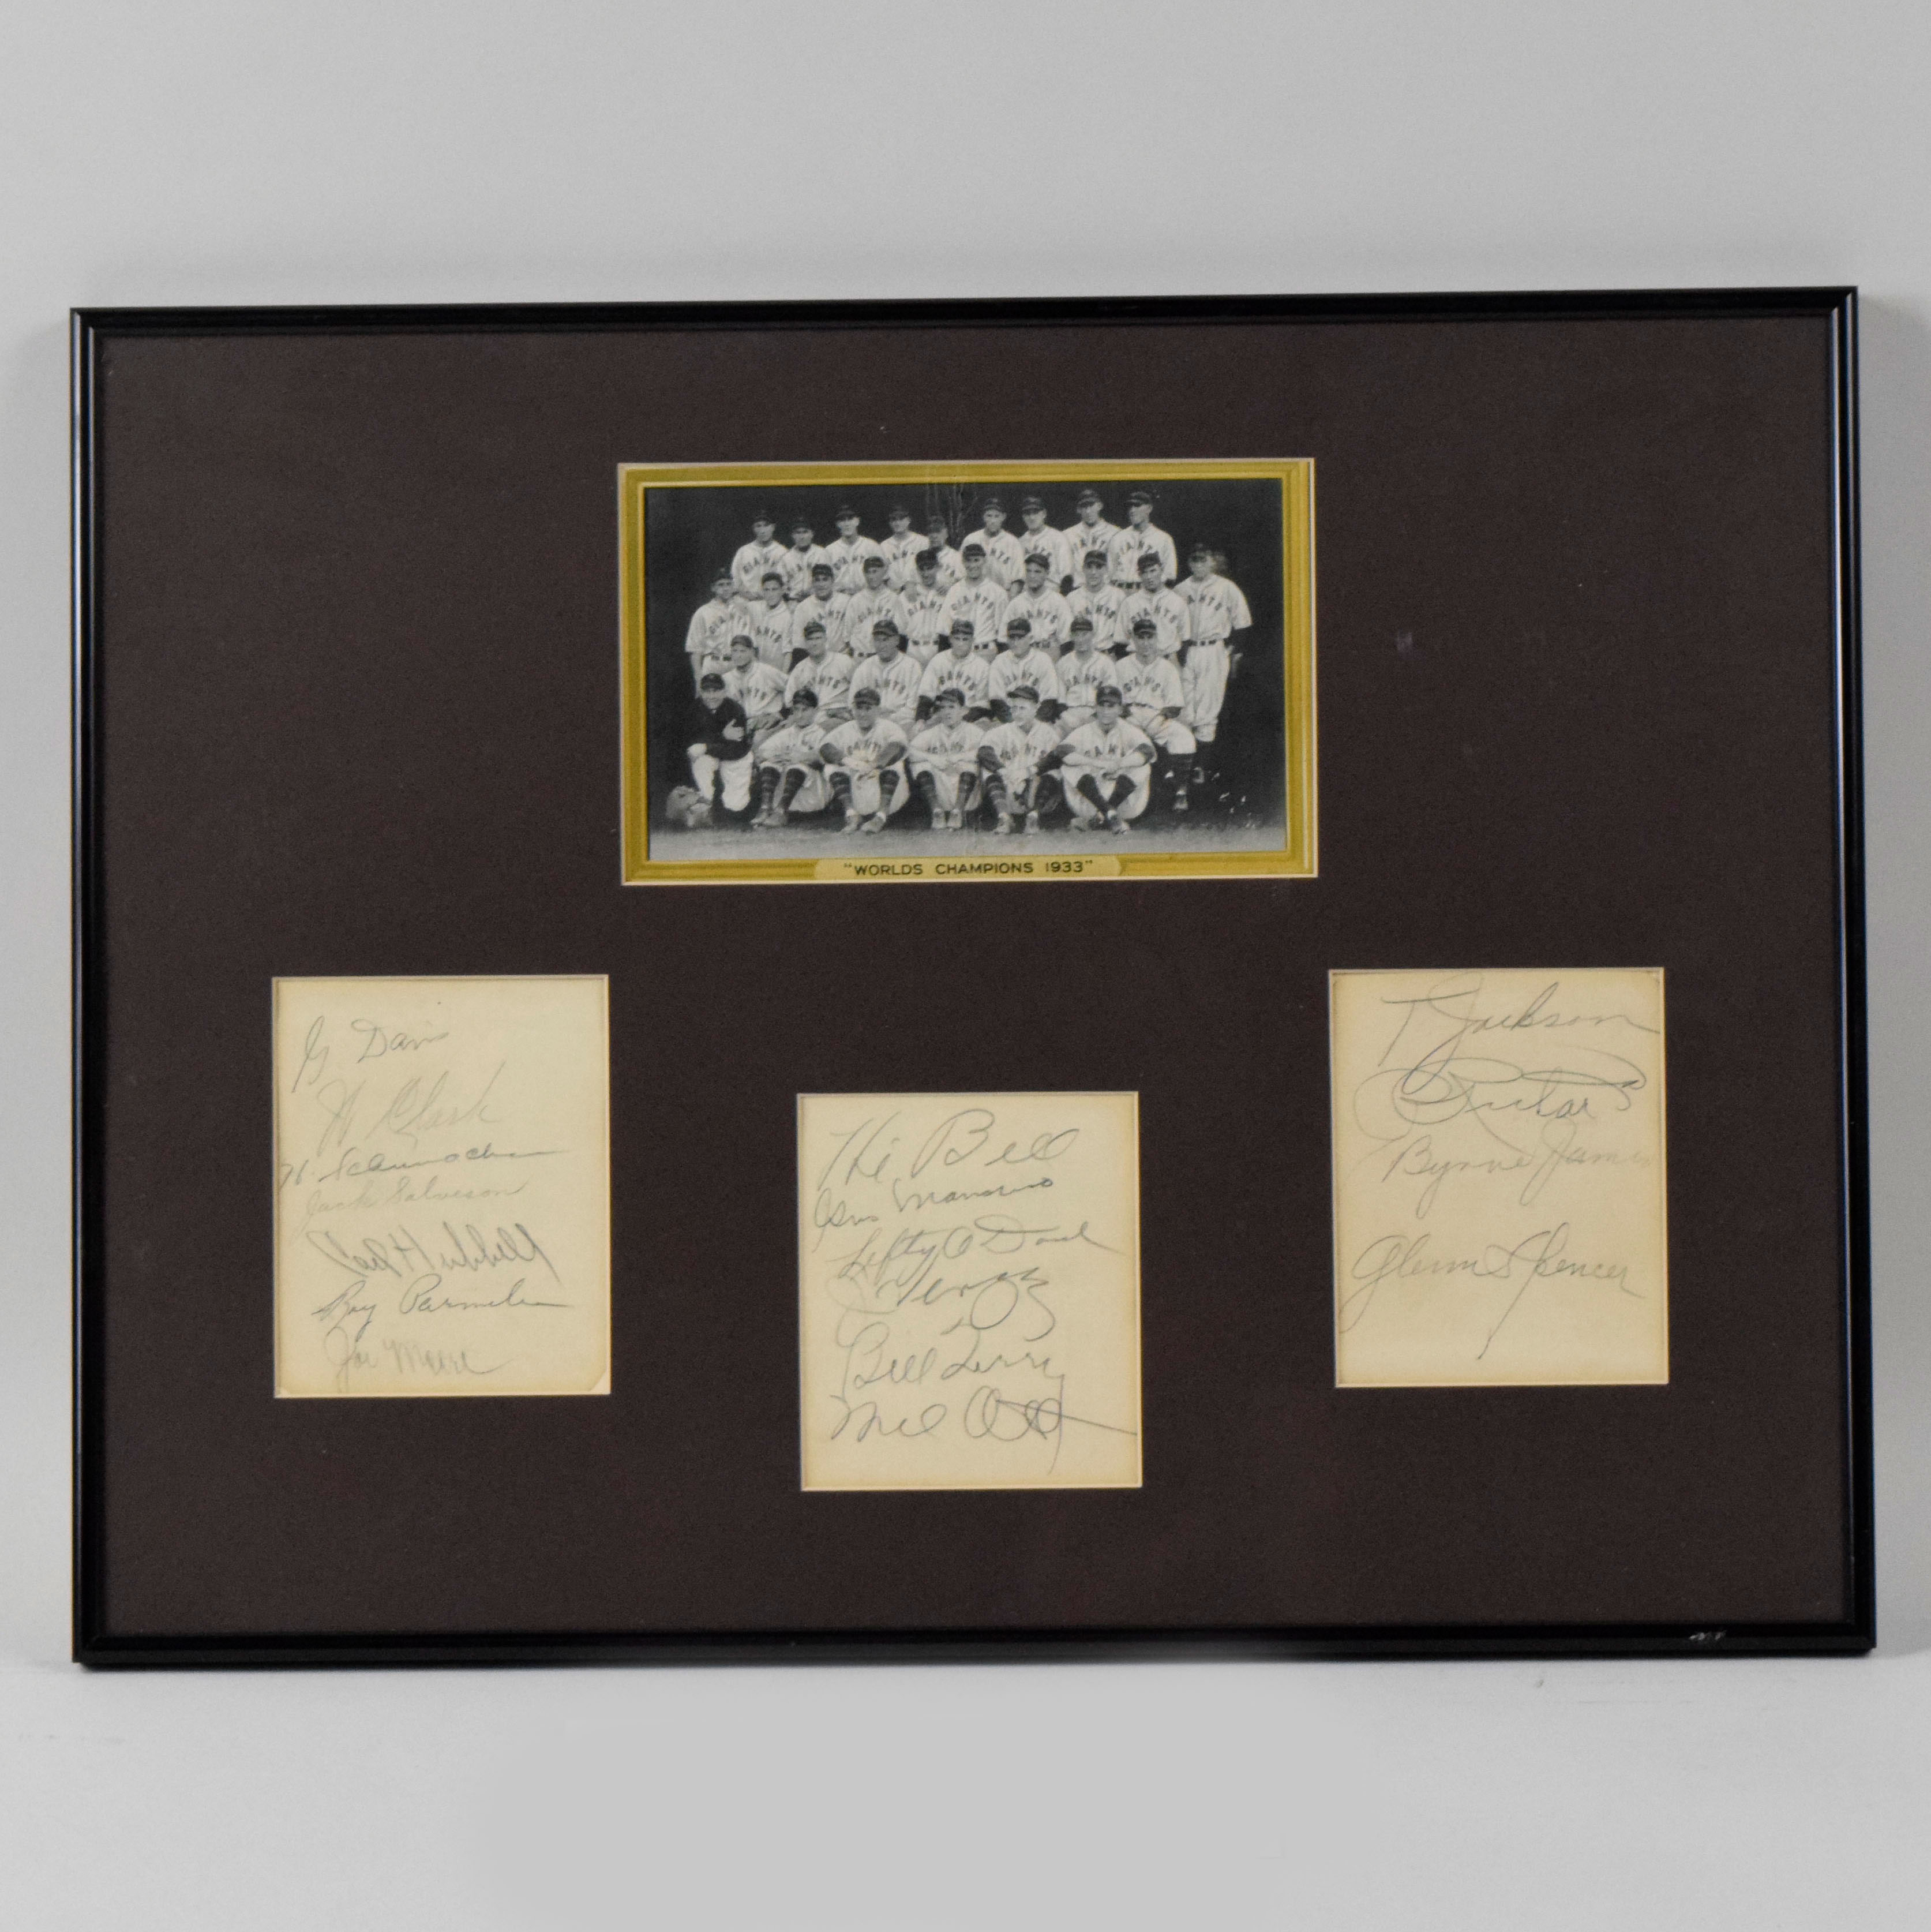 "WORLDS CHAMPIONS 1933"
G Davis
W Clark
H. Schumacher
Jack Salveson
Carl Hubbell
Roy Parmelee
Joe Moore
Hi Bell
Gus Mancuso
Lefty O Doul
Bill Terry
Mel Ott
T Jackson
B Richards
Byrne James
Glenn Spencer